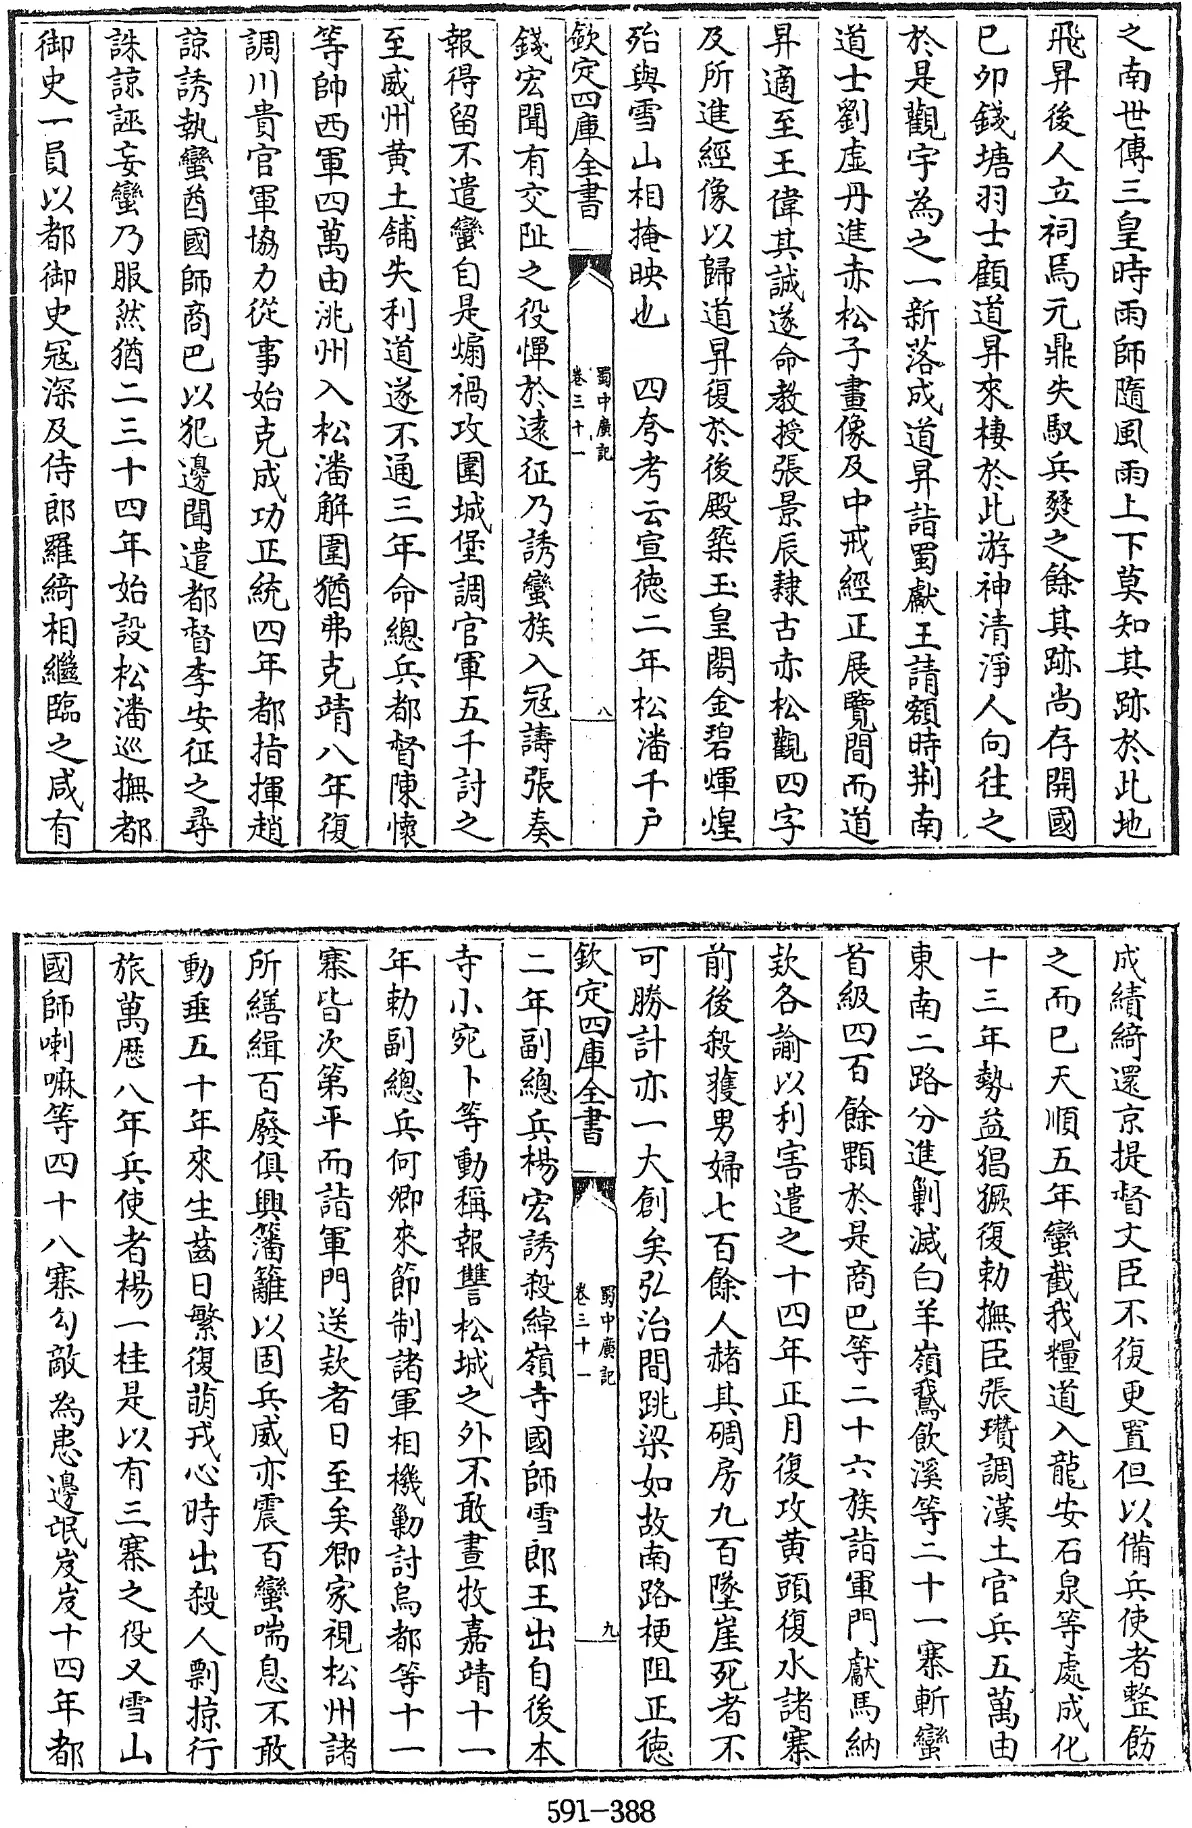 之南世傳三皇時雨師隨風雨上下莫知其跡於此地
飛昇後人立祠焉元鼎失馭兵燹之餘其跡尚存開國
已卯錢塘羽士顧道昇來棲於此游神清淨人向往之
於是觀宇為之一新落成道昇詣蜀獻王請額時荆南
道士劉虛丹進赤松子畫像及中戒經正展覽間而道
昇適至王偉其誠遂命教授張景辰隸古赤松觀四字
及所進經像以歸道昇復於後殿築玉皇閣金碧煇煌
殆與雪山相掩映也　四夸考云宣徳二年松潘千戶
欽定四庫全書
蜀中廣記
卷三十一
八
錢宏聞有交阯之役憚於逺征乃誘蠻族入冦譸張奏
報得留不遣蠻自是煽禍攻圍城堡調官軍五千討之
至威州黄土鋪失利道遂不通三年命總兵都督陳懷
等帥西軍四萬由洮州入松潘解圍猶弗克靖八年復
調川貴官軍協力從事始克成功正統四年都指揮趙
諒誘執蠻酋國師商巴以犯邊聞遣都督李安征之尋
誅諒誣妄蠻乃服然猶二三十四年始設松潘巡撫都
御史一員以都御史冦深及侍郎羅綺相繼臨之咸有
成績綺還京提督文臣不復更置但以備兵使者整飭
之而已天順五年蠻截我糧道入龍安石泉等處成化
十三年勢益猖獗復勅撫臣張瓚調漢土官兵五萬由
東南二路分進剿滅白羊嶺鵞飲溪等二十一寨斬蠻
首級四百餘顆於是商巴等二十六族詣軍門獻馬納
欵各諭以利害遣之十四年正月復攻黄頭復水諸寨
前後殺獲男婦七百餘人赭其碉房九百墜崖死者不
可勝計亦一大創矣弘治間跳梁如故南路梗阻正徳
欽定四庫全書
蜀中廣記
卷三十一
九
二年副總兵楊宏誘殺綽嶺寺國師雪郎王出自後本
寺小宛卜等動稱報讐松城之外不敢晝牧嘉靖十一
年勅副總兵何卿來節制諸軍相機勦討烏都等十一
寨皆次第平而詣軍門送欵者日至矣卿家視松州諸
所繕緝百廢俱興籓籬以固兵威亦震百蠻喘息不敢
動垂五十年來生齒日繁復萌戎心時出殺人剽掠行
旅萬厯八年兵使者楊一桂是以有三寨之役又雪山
國師喇嘛等四十八寨勾敵為患邊氓岌岌十四年都
591-388